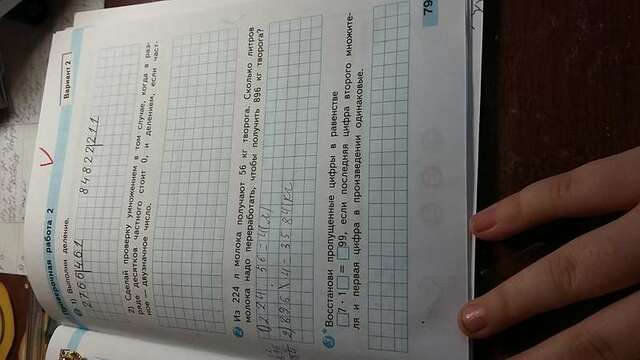 Проверочная работа 2
Вариант 2
1 1) Выполни деление.
2766 461 84822 211
2) Сделай проверку умножением в том случае, когда в раз-
ряде десятков частного стоит 0, и делением, если част-
ное — двузначное число.
2 Из 224 л молока получают 56 кг творога. Сколько литров
молока надо переработать, чтобы получить 896 кг творога?
1) 224 : 56 = 4(л)
2) 896 · 4 = 3584(кг
3* Восстанови пропущенные цифры в равенстве
7 · 1 = 99, если последняя цифра второго множите-
ля и первая цифра в произведении одинаковые.
79